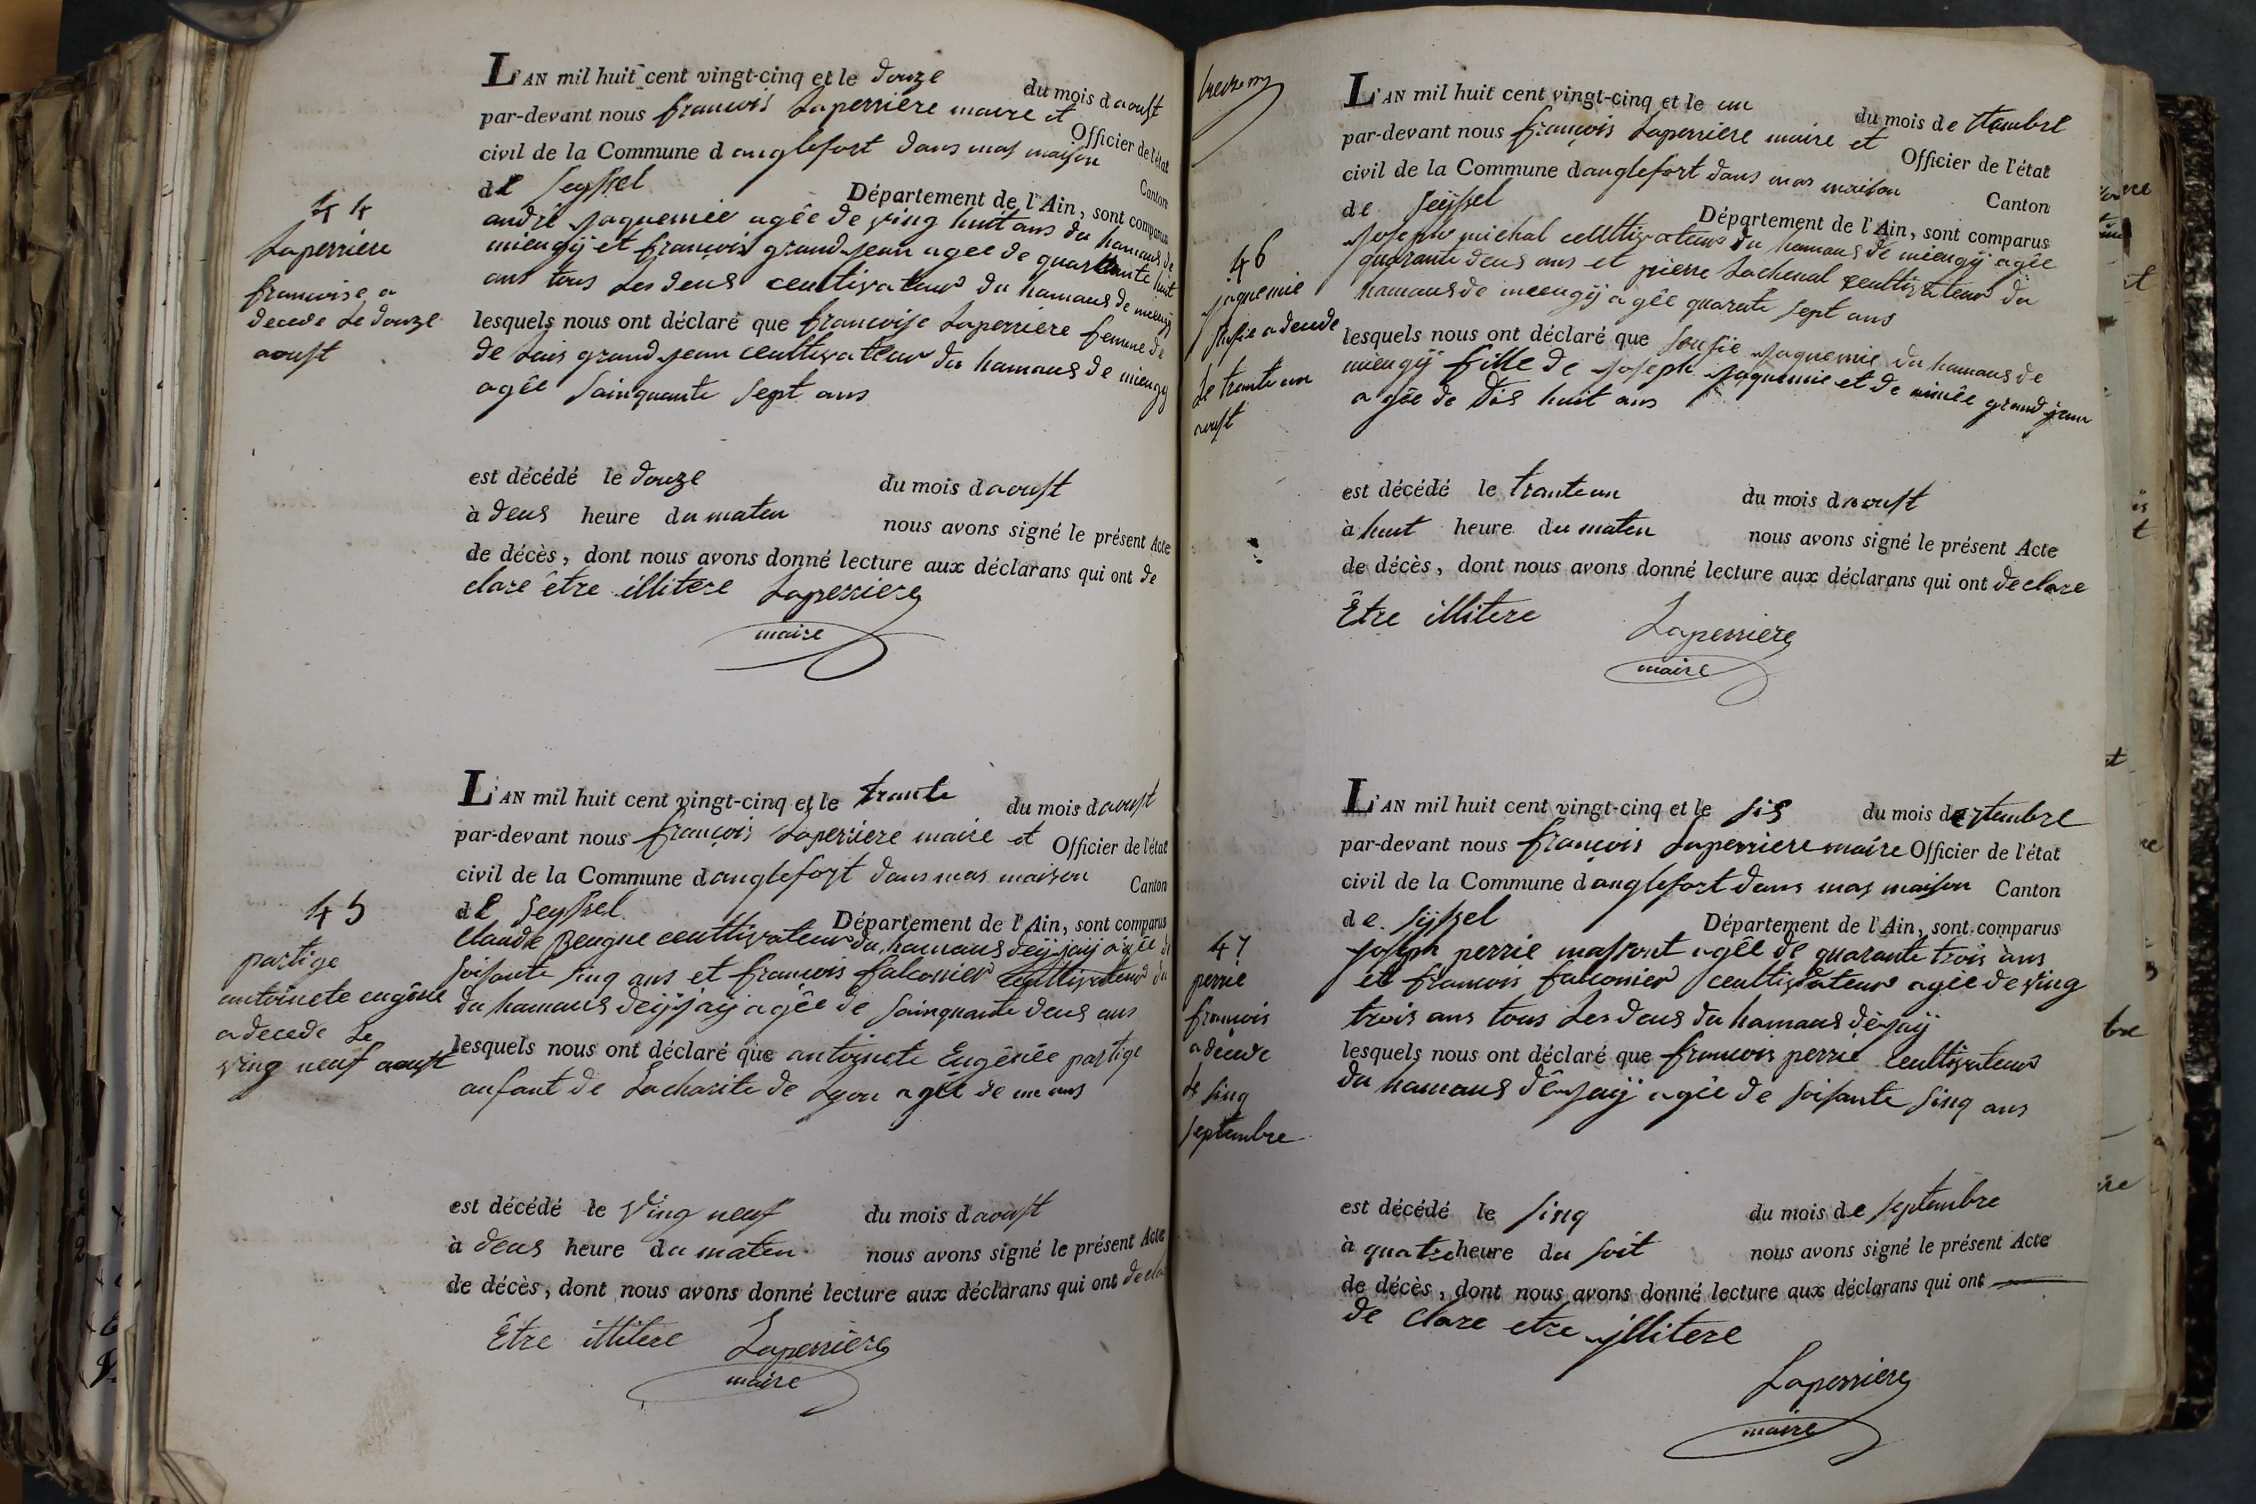 L'AN mil huit cent vingt-cinq et le douze du mois d aoust
par-devant nous francois Laperriere maire et Officier de l'état
civil de la Commune d anglefort dans mas maison Canton
de Seyssel Département de l'Ain, sont comparus
44
Laperriere
francoise a
decede Le douze
aoust
andrê Jaquemie agêe de ving huit ans du hamaus de
miengÿ et francois grandJean agee de quarante huit
ans tous Les deus ceultivateur du hamaus de miengÿ
lesquels nous ont déclaré que francoise Laperriere femme de
de Luis grand Jean ceultivateur du hamaus de miengy
agêe Sainquante Sept ans
est décédé le douze du mois d aoust
à deus heure du maten nous avons signé le présent Acte
de décès, dont nous avons donné lecture aux déclarans qui ont de
clare être illitere Laperriere
maire
L'AN mil huit cent vingt-cinq et le trante du mois d aoust
par-devant nous françois Laperriere maire et Officier de l'état
civil de la Commune d anglefort dans mas maison Canton
de Seyssel Département de l'Ain, sont comparus
45
partige
antoinete eugêne
a decede Le
ving neuf aoust
Claude Beugne ceultivateur du hamaus
Soisante Sinq ans et francois falconier ceultivateur du
du hamaus agêe de Sainquante deus ans
lesquels nous ont déclaré que antoinete Eugênêe partige
anfant de Lacharite de Lyon agêe de un ans
est décédé le Ving neuf du mois d aoust
à deus heure du maten nous avons signé le présent Acte
de décès, dont nous avons donné lecture aux déclarans qui ont decla
Être illitere Laperriere
maire
L'AN mil huit cent vingt-cinq et le un du mois de
par-devant nous françois Laperriere maire et Officier de l'état
civil de la Commune d anglefort dans mas maison Canton
de Seÿssel Département de l'Ain, sont comparus
46
jaquemie
Sufie a decede
Le trante un
aoust
Joseph michal ceultivateur du hamaus de miengÿ agêe
quarante deus ans et pierre Lachenal ceultivateur du
hamaus de miengÿ agêe quarate Sept ans
lesquels nous ont déclaré que Soufie Jaquemie du hamaus de
miengÿ fille de Joseph Jaquemie et de grand jean
agêe de Dis huit ans
est décédé le tranteun du mois d aoust
à huit heure du maten nous avons signé le présent Acte
de décès, dont nous avons donné lecture aux déclarans qui ont declare
Être illitere Laperriere
maire
L'AN mil huit cent vingt-cinq et le Sis du mois de
par-devant nous françois Laperriere maire Officier de l'état
civil de la Commune d anglefort dans mas maison Canton
de Syssel Département de l'Ain, sont comparus
47
perrie
francois
a decede
Le Sinq
Septembre
Joseph perrie massont agêe de quarante trois ans
et francois falconier ceultivateur agêe de ving
trois ans tous Les deus du hamaus
lesquels nous ont déclaré que francois perrie ceultivateur
du hamaus agêe de Soisante Sinq ans
est décédé le Sinq du mois de Septembre
à quatre heure du Soit nous avons signé le présent Acte
de décès, dont nous avons donné lecture aux déclarans qui ont
de clare etre illitere
Laperriere
maire